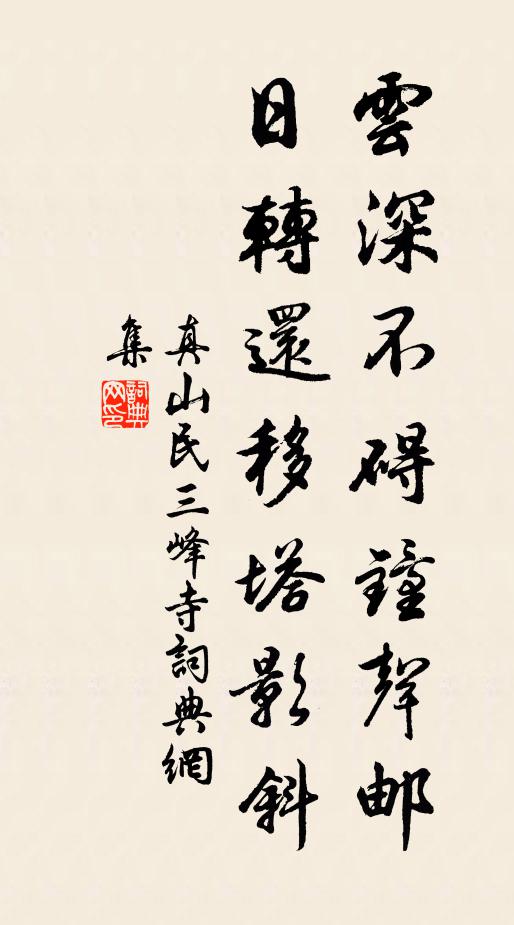 雲深不碍鐘聲邮
日轉還移塔影斜
真山民三峰寺詞典網
集
詞典
网印